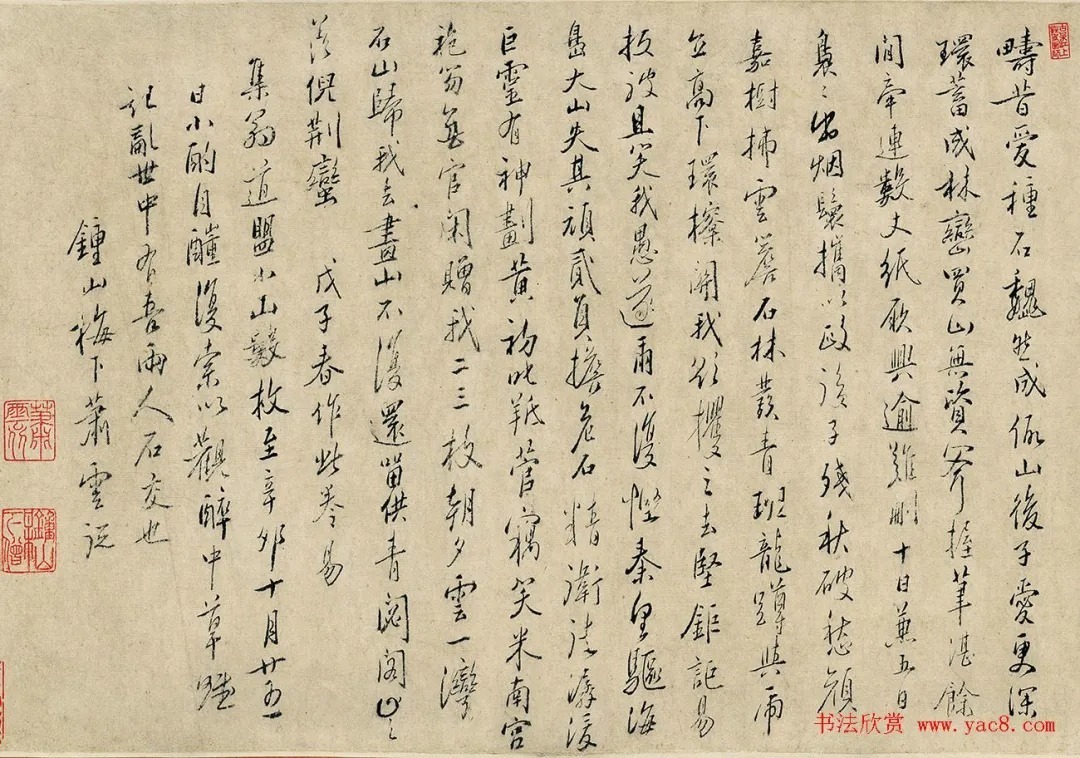 疇昔愛種石巍然成假山後子愛更深
環蓄成林巒買山無資斧握筆湛餘
閒牽連數丈紙欣興逾難刪十日兼五日
裊〻出烟鬟攜以 子殘秋破愁顏
嘉樹拂雲巖石林叢青班龍蹲與虎
立高下環 開我欲攫之去堅鉅詎易
扳被且笑我愚遂爾不復慳秦皇驅海
島大山失其頑貳負擔危石精衛 潺湲
巨靈有神劃黃初叱羝菅竊笑米南宮
袍笏無官閑贈我二三枚朝夕雲一灣
石山歸我去畫山不復還留供青閟閣
落倪荊蠻 戊子春作此卷易
集翁道盟小山數枚至辛卯十月廿五
日小酌月 復索以觀醉中草
記亂世中有吾兩人石交也
鍾山梅下蕭雲從
蕭雲從
鍾山
书法欣赏 www.yac8.com